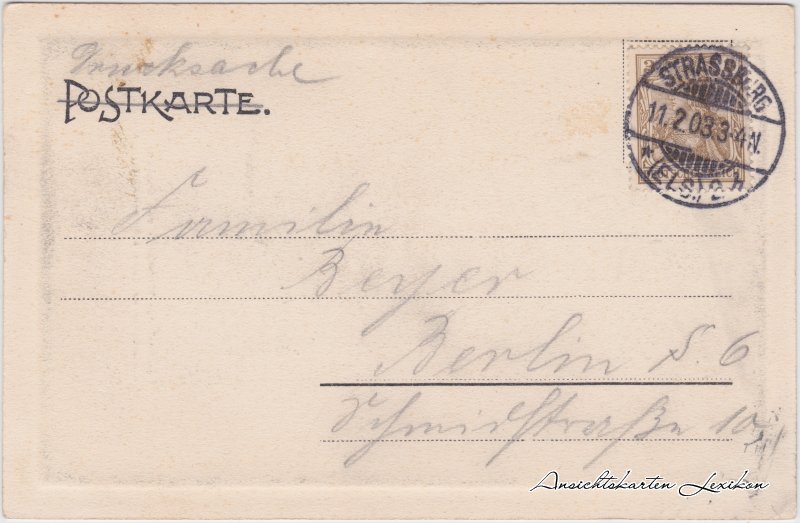 Drucksache
POSTKARTE.
STRASSBURG
11.2.03.3-4N.
* (ELS.) 2 h
Familie
Beyer
Berlin S. 6
Schmidstraße 10
Ansichtskarten Lexikon